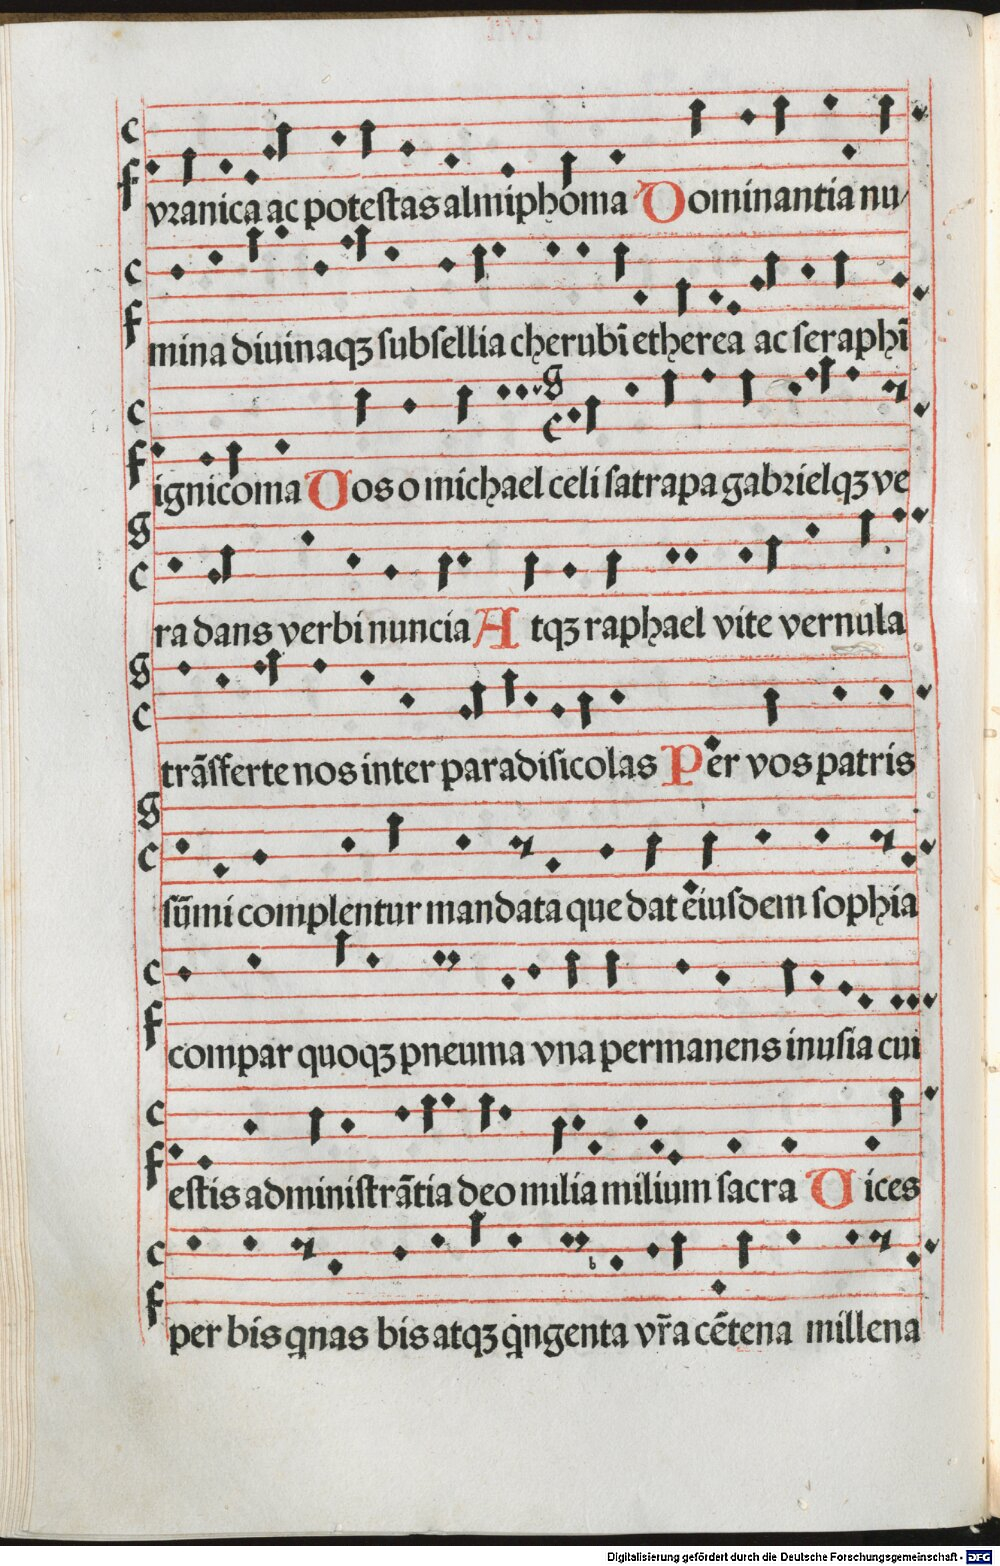 vranica ac potestas almiphona Dominantia nu/
mina diuinaqꝫ subsellia cherubī etherea ac seraphī
ignicoma Vos o michael celi satrapa gabrielqꝫ ve
ra dans verbi nuncia Atqꝫ raphael vite vernula
trāsferte nos inter paradisicolas Per vos patris
sūmi complentur mandata que dat eiusdem sophia
compar quoqꝫ pneuma vna permanens in usia cui
estis administrātia deo milia milium sacra Vices
per bis qnas bis atqꝫ qngenta vr̄a cētena millena
Digitalisierung gefördert durch die Deutsche Forschungsgemeinschaft - DFG